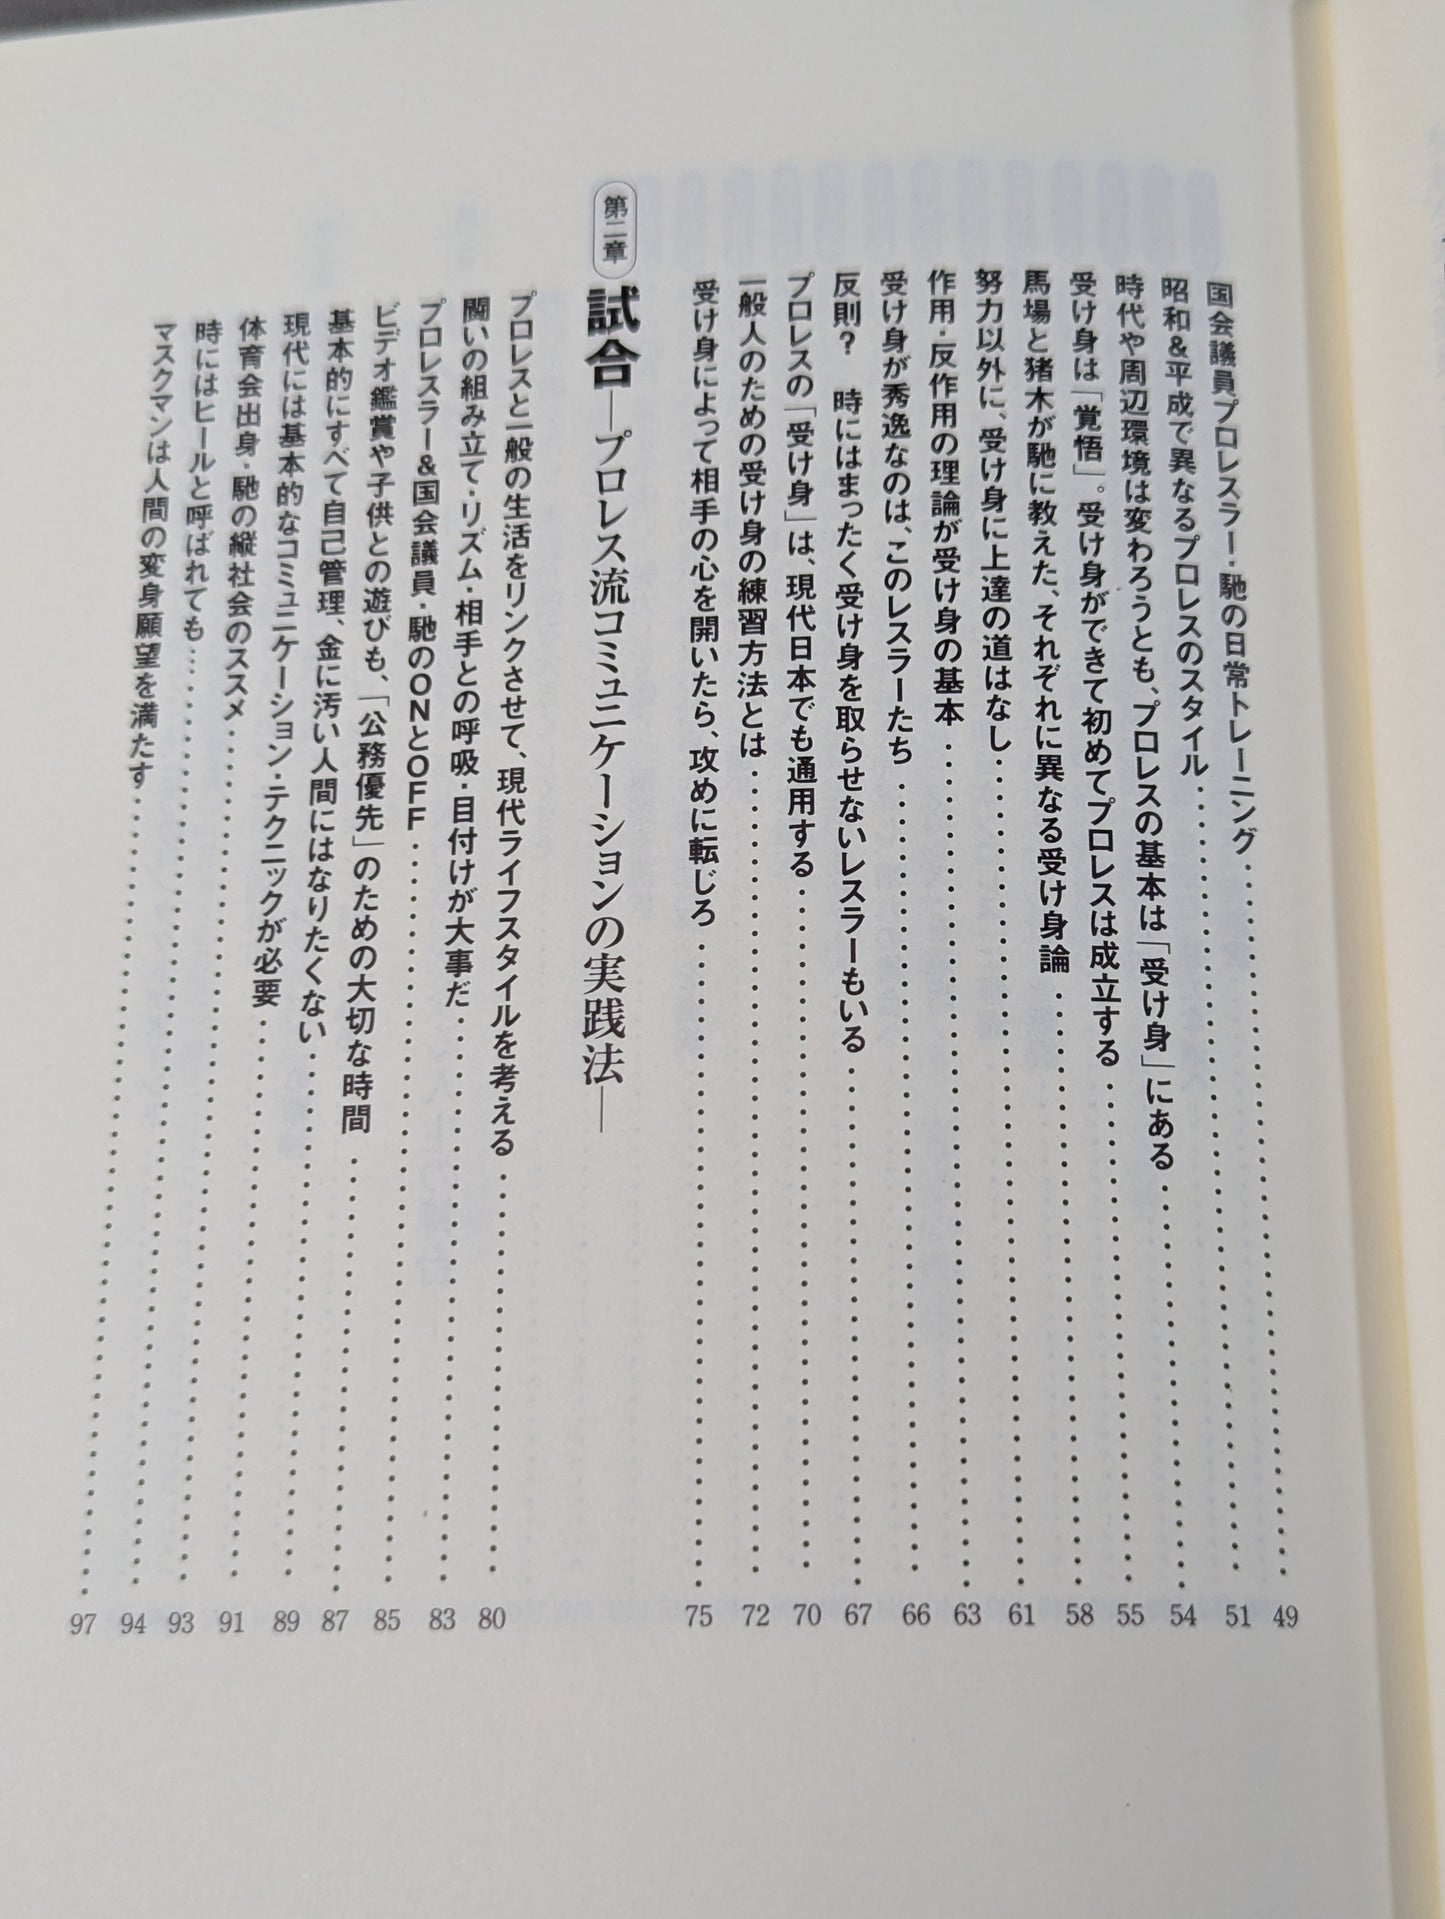 国会議員プロレスラー・馳の日常トレーニング……49
昭和&平成で異なるプロレスのスタイル……51
時代や周辺環境は変わろうとも、プロレスの基本は「受け身」にある……54
受け身は「覚悟」。受け身ができて初めてプロレスは成立する……55
馬場と猪木が馳に教えた、それぞれに異なる受け身論……58
努力以外に、受け身に上達の道はなし……61
作用・反作用の理論が受け身の基本……63
受け身が秀逸なのは、このレスラーたち……66
反則？　時にはまったく受け身を取らせないレスラーもいる……67
プロレスの「受け身」は、現代日本でも通用する……70
一般人のための受け身の練習方法とは……72
受け身によって相手の心を開いたら、攻めに転じろ……75
第二章 試合―プロレス流コミュニケーションの実践法―
プロレスと一般の生活をリンクさせて、現代ライフスタイルを考える……80
闘いの組み立て・リズム・相手との呼吸・目付けが大事だ……83
プロレスラー&国会議員・馳のONとOFF……85
ビデオ鑑賞や子供との遊びも、「公務優先」のための大切な時間……87
基本的にすべて自己管理、金に汚い人間にはなりたくない……89
現代には基本的なコミュニケーション・テクニックが必要……91
体育会出身・馳の縦社会のススメ……93
時にはヒールと呼ばれても……94
マスクマンは人間の変身願望を満たす……97